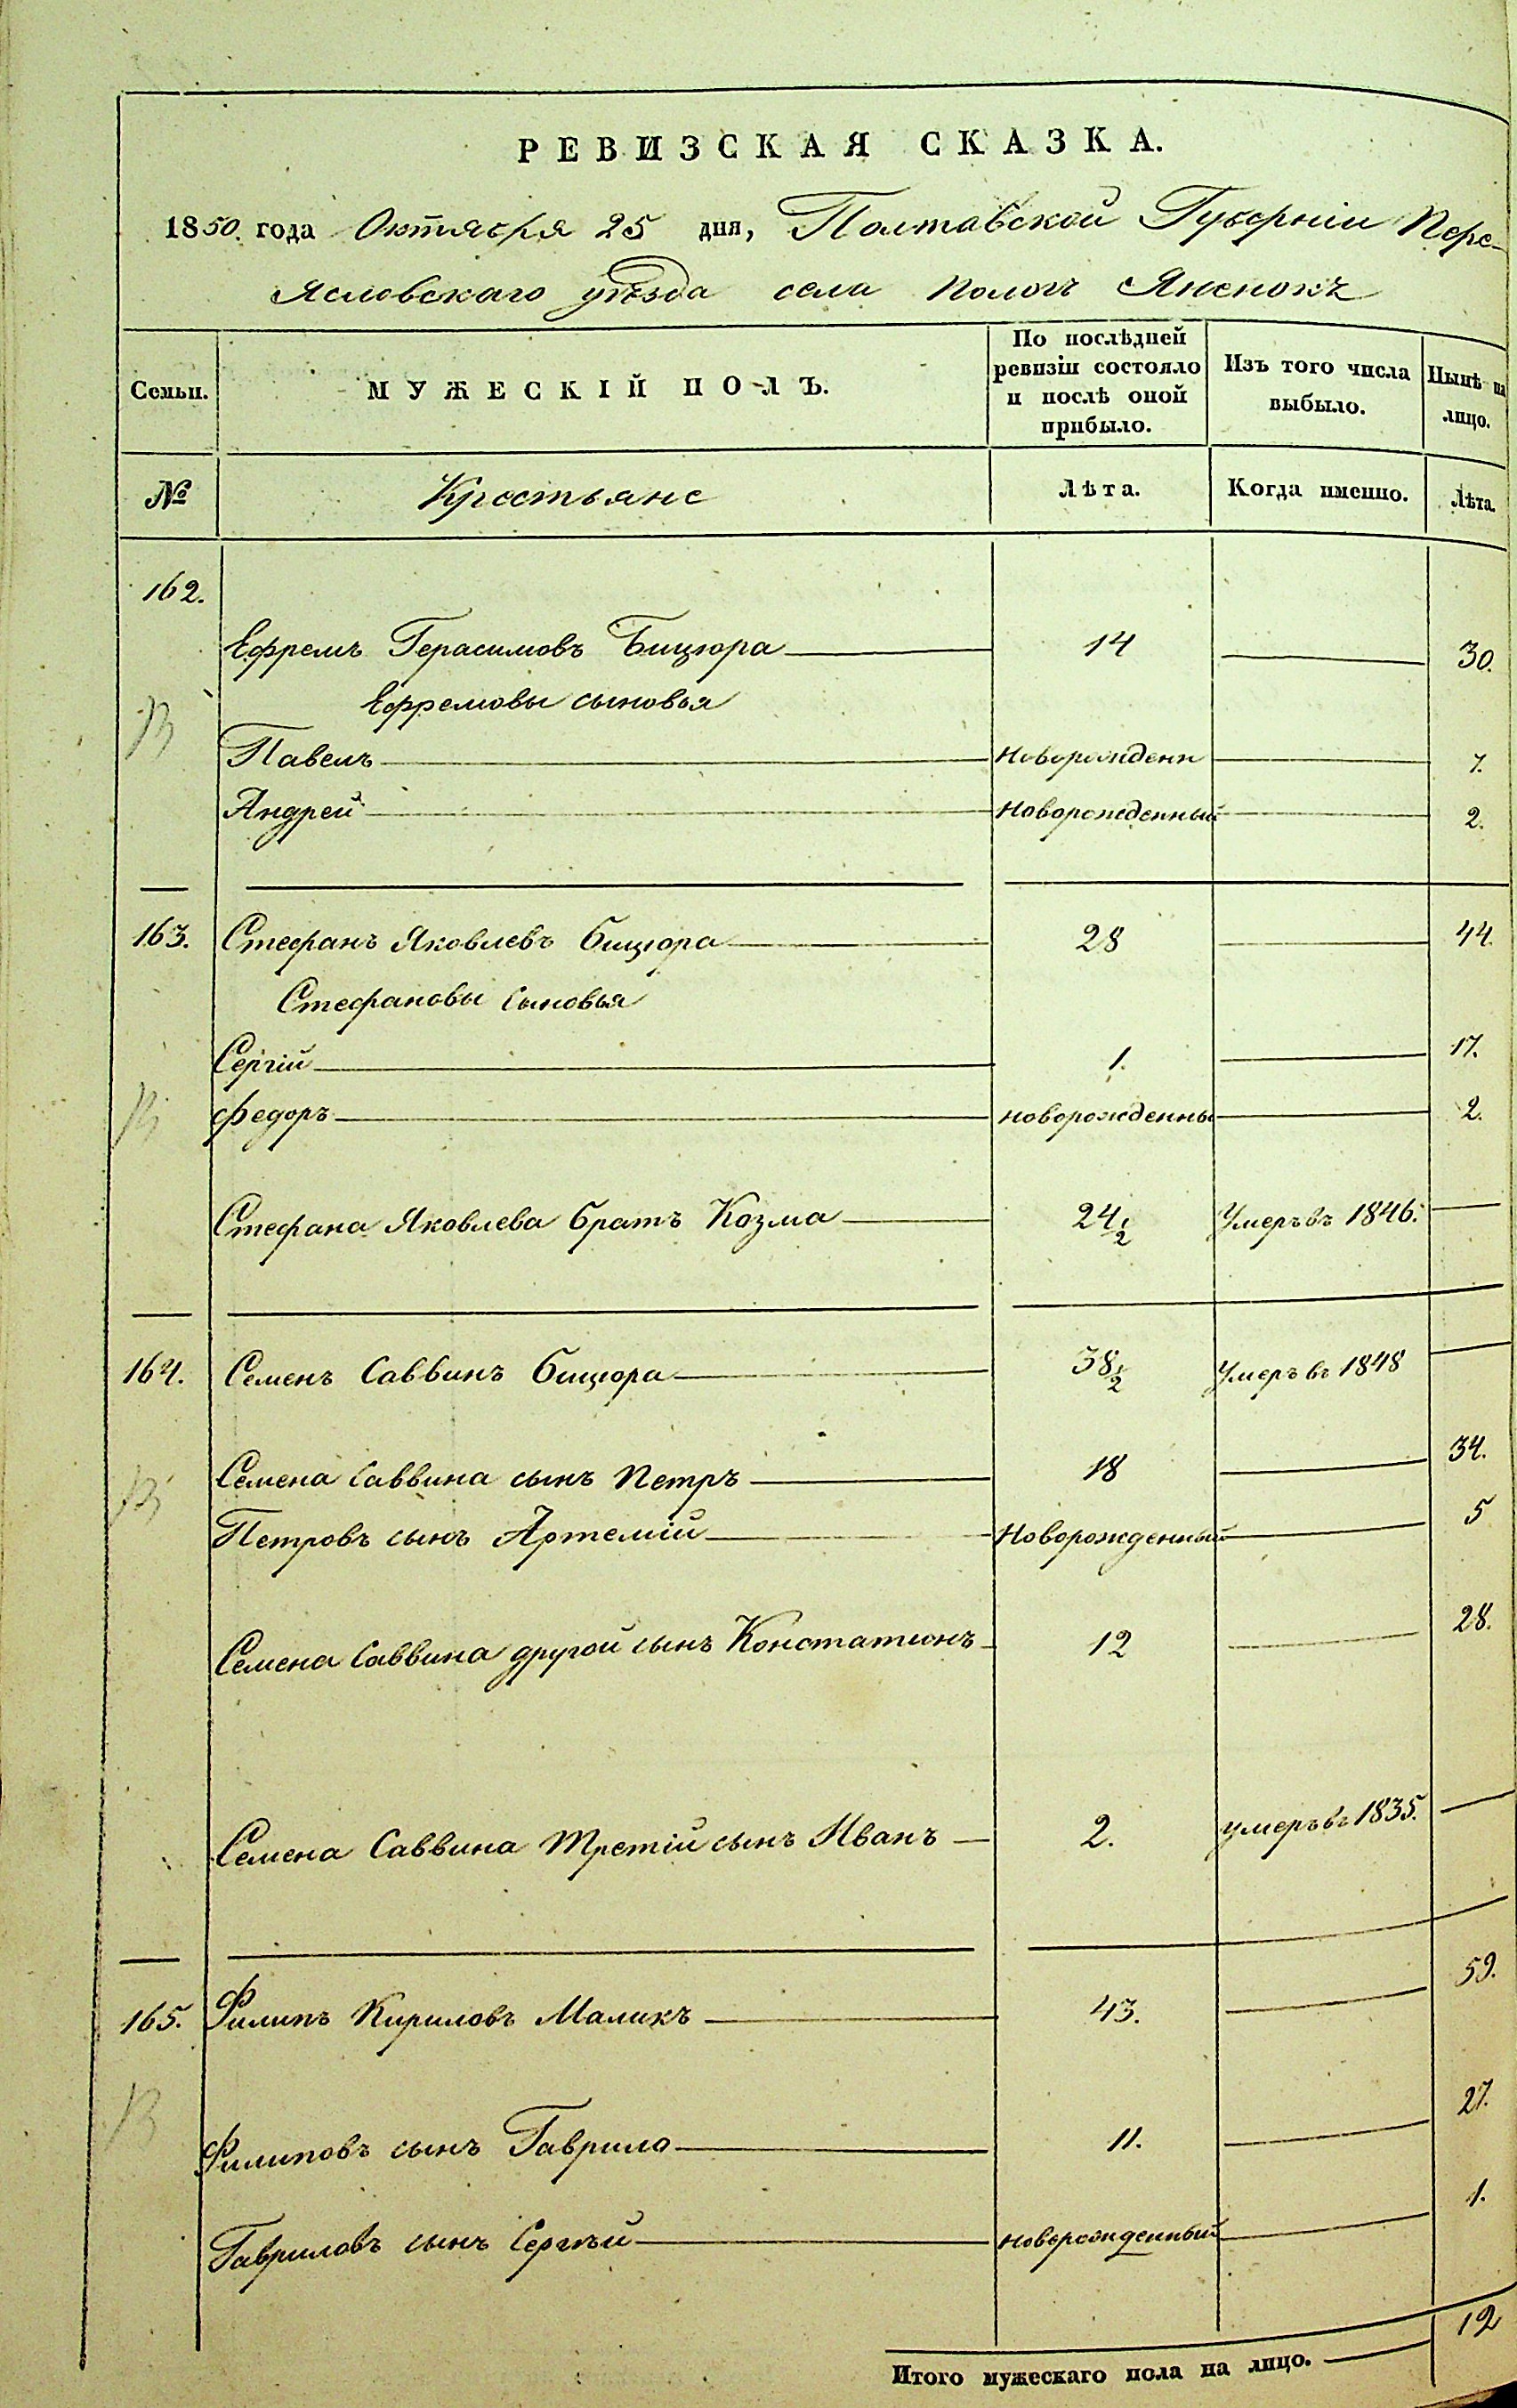 РЕВИЗСКАЯ СКАЗКА.
1850. года Октября 25 дня, Полтавской Губерніи Пере-
Ясловскаго уѣзда села Пологъ Яненокъ
Семьи. МУЖЕСКІЙ ПОЛЪ. По послѣдней ревизіи состояло и послѣ оной прибыло. Изъ того числа выбыло. Нынѣ на лицо.
№ Крестьяне Лѣта. Когда именно. Лѣта.
162.
Ефремъ Герасимовъ Бицюра 14 30.
Ефремовы сыновья
Павелъ Новорожденн 7.
Андрей Новорожденный 2.
163. Стефанъ Яковлевъ Бицюра 28 44.
Стефановы сыновья
Сергій 1. 17.
Федоръ новорожденны 2.
Стефана Яковлева братъ Козма 24 1/2 Умеръ въ 1846.
164. Семенъ Саввинъ Бицюра 38 1/2 Умеръ въ 1848
Семена Саввина сынъ Петръ 18 34.
Петровъ сынъ Артемій Новорожденный 5
Семена Саввина другой сынъ Констатинъ 12 28.
Семена Саввина Третій сынъ Иванъ 2. умеръ въ 1835.
165. Филипъ Кириловъ Маликъ 43. 59.
Филиповъ сынъ Гаврило 11. 27.
Гавриловъ сынъ Сергѣй новорожденный 1.
Итого мужескаго пола на лицо. 12